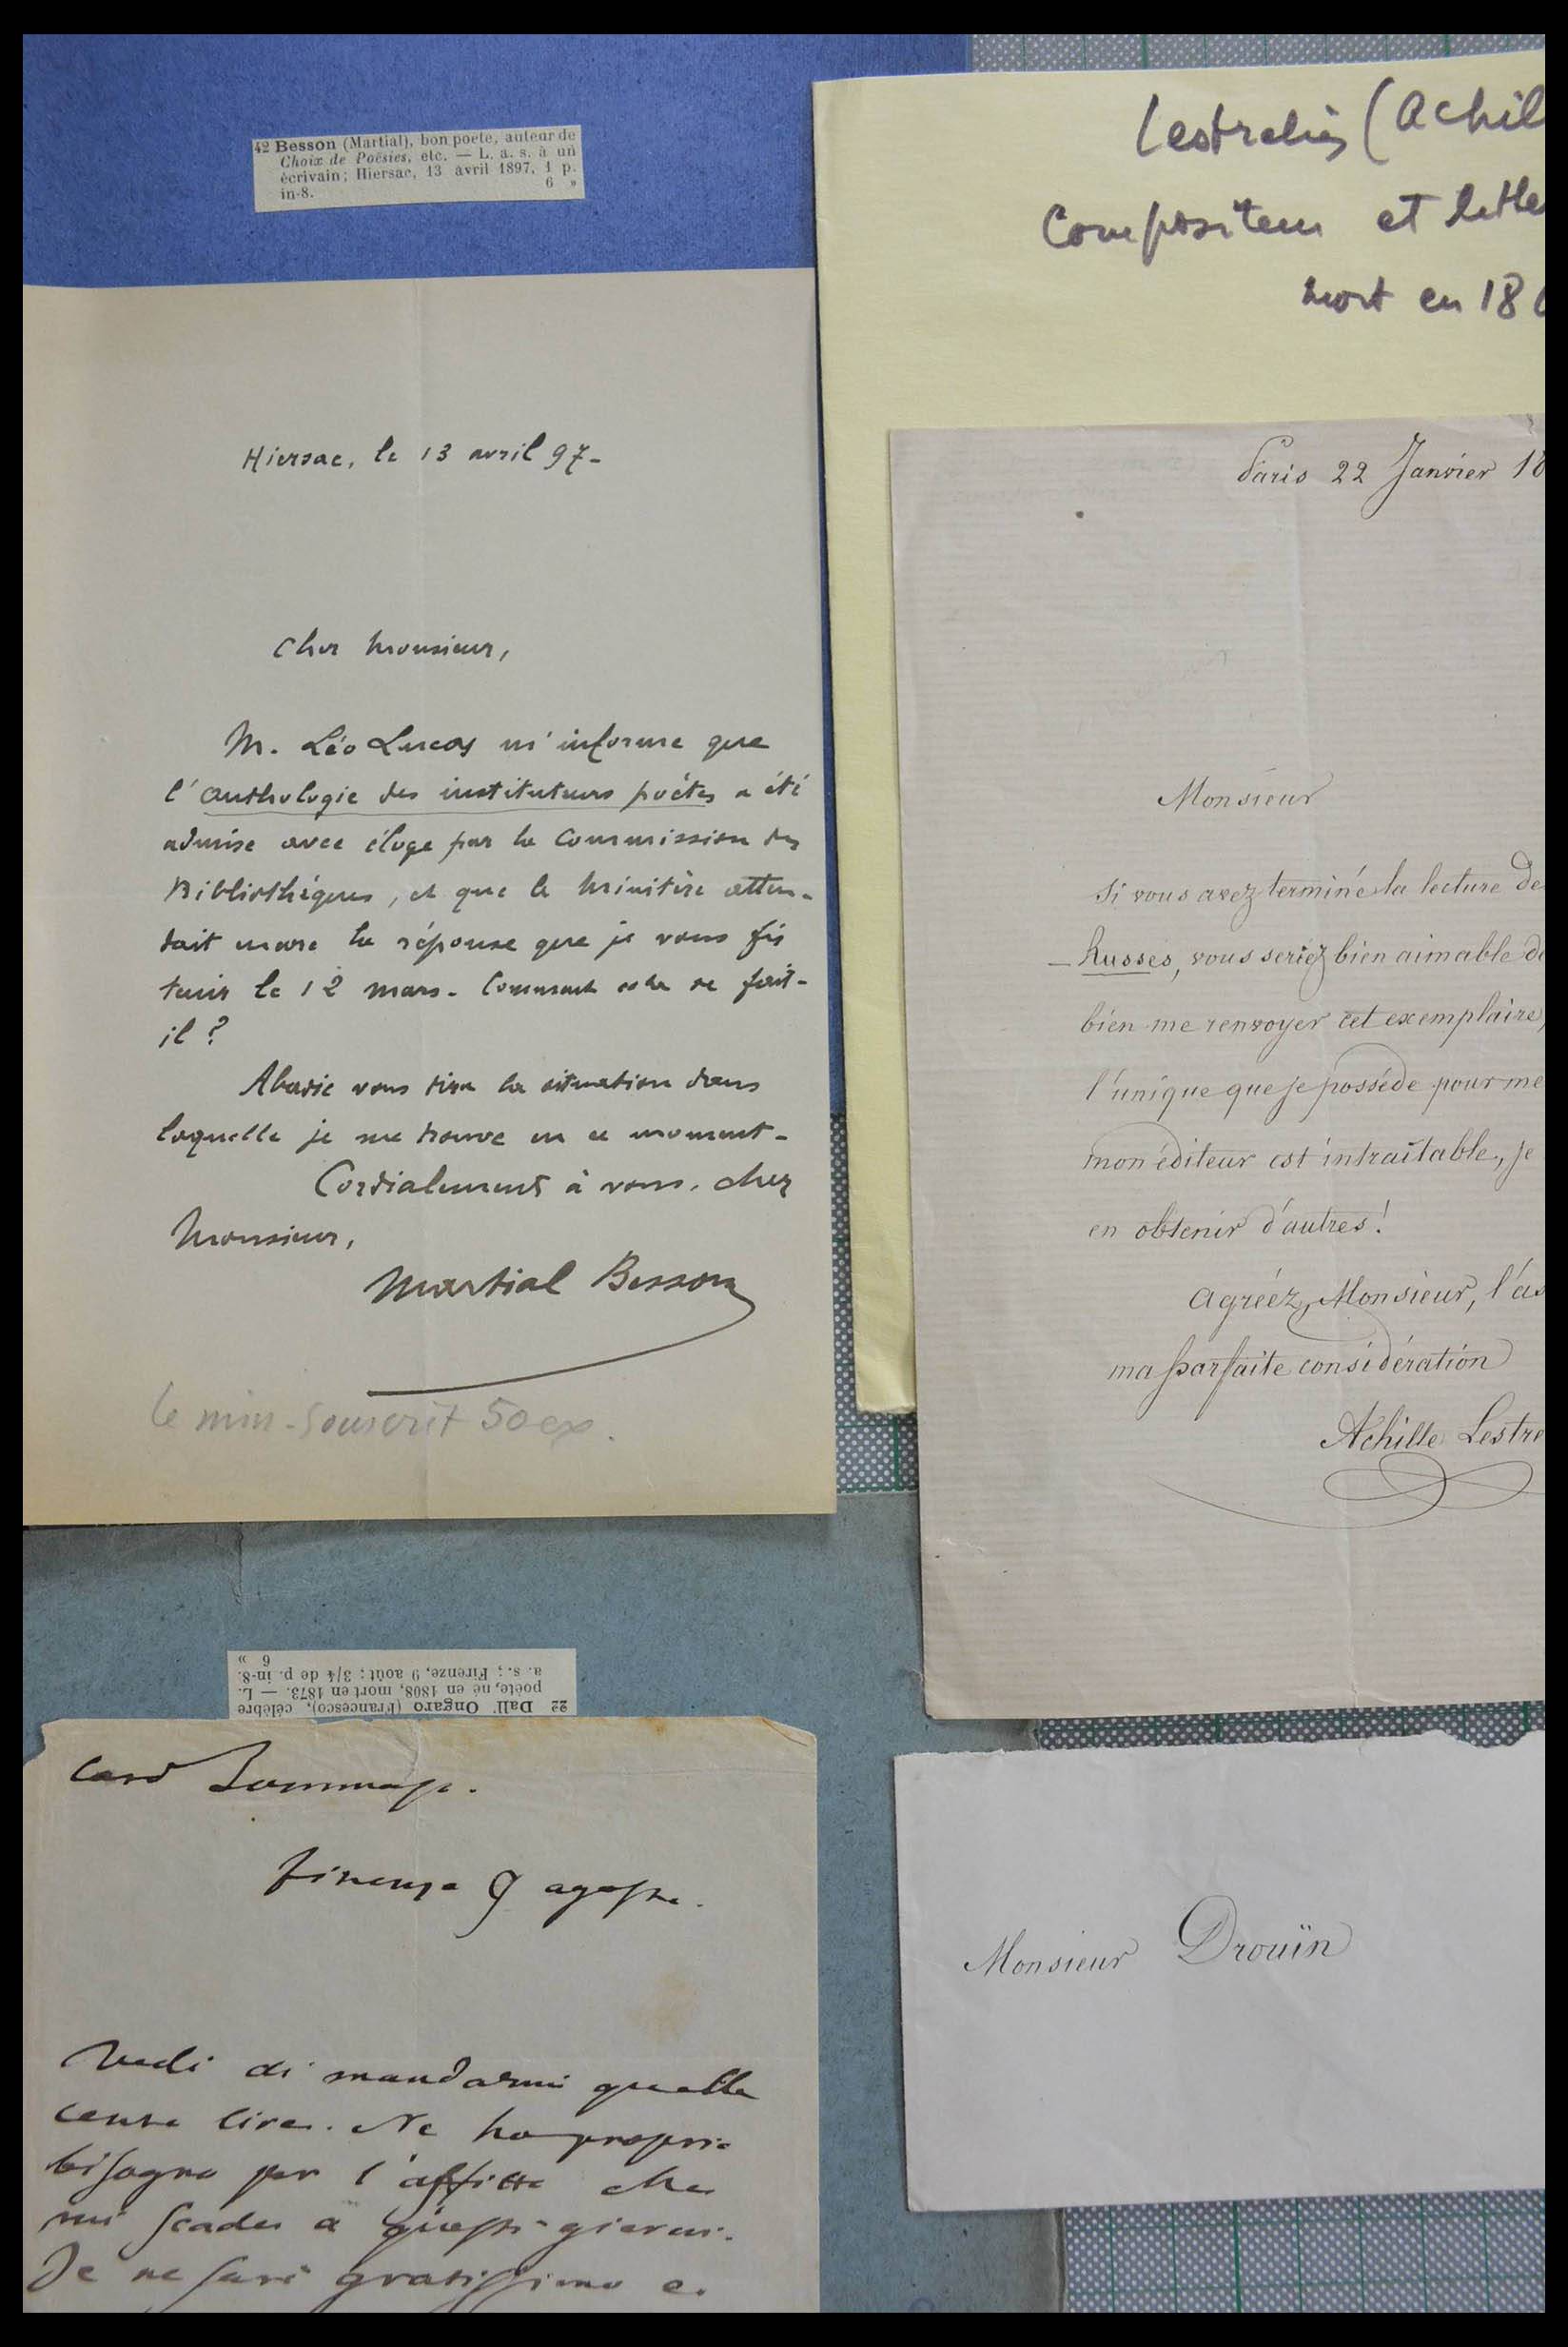 42 Besson (Martial), bon poète, auteur de
Choix de Poésies, etc. — L. a. s. à un
écrivain; Hiersac, 13 avril 1897, 1 p.
in-8. 6 »
Hiersac, le 13 avril 97-
Cher Monsieur,
M. Léo Lucas m'informe que
l'anthologie des instituteurs poètes a été
admise avec éloge par la Commission des
Bibliothèques, et que le Ministère atten-
dait la réponse que je vous fis
tenir le 12 mars. Comment cela se fait-
il ?
vous dira la situation dans
laquelle je me trouve en ce moment-
Cordialement à vous, cher
Monsieur,
Martial Besson
le min. souscrit 50 ex.
(Achil
Compositeur et lettr
mort en 18
Paris 22 Janvier 18
Monsieur
Si vous avez terminé la lecture de
- Russes, vous seriez bien aimable de
bien me renvoyer cet exemplaire,
l'unique que je possède pour me
mon éditeur est intraitable, je
en obtenir d'autres!
Agréez, Monsieur, l'as
ma parfaite considération
Achille Lestre
22 Dall' Ongaro (Francesco), célèbre
poète, né en 1808, mort en 1873. — L.
a. s.; Firenze, 9 août; 3/4 de p. in-8.
6 »
Caro
Firenze 9 agosto.
Vedi di mandarmi quelle
cento lire. Ne ho proprio
bisogno per l'affitto che
mi scade a questi giorni.
Te ne sarò gratissimo e
Monsieur Drouïn